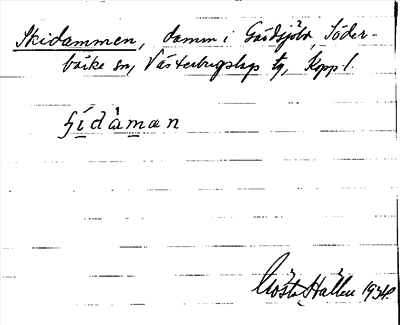 Skidammen, damm i Gårdsjön, Söder-
bärke sn, Västerbergslags tg, Kopp l.
ʃídàman
Gösta Hallén 1934.